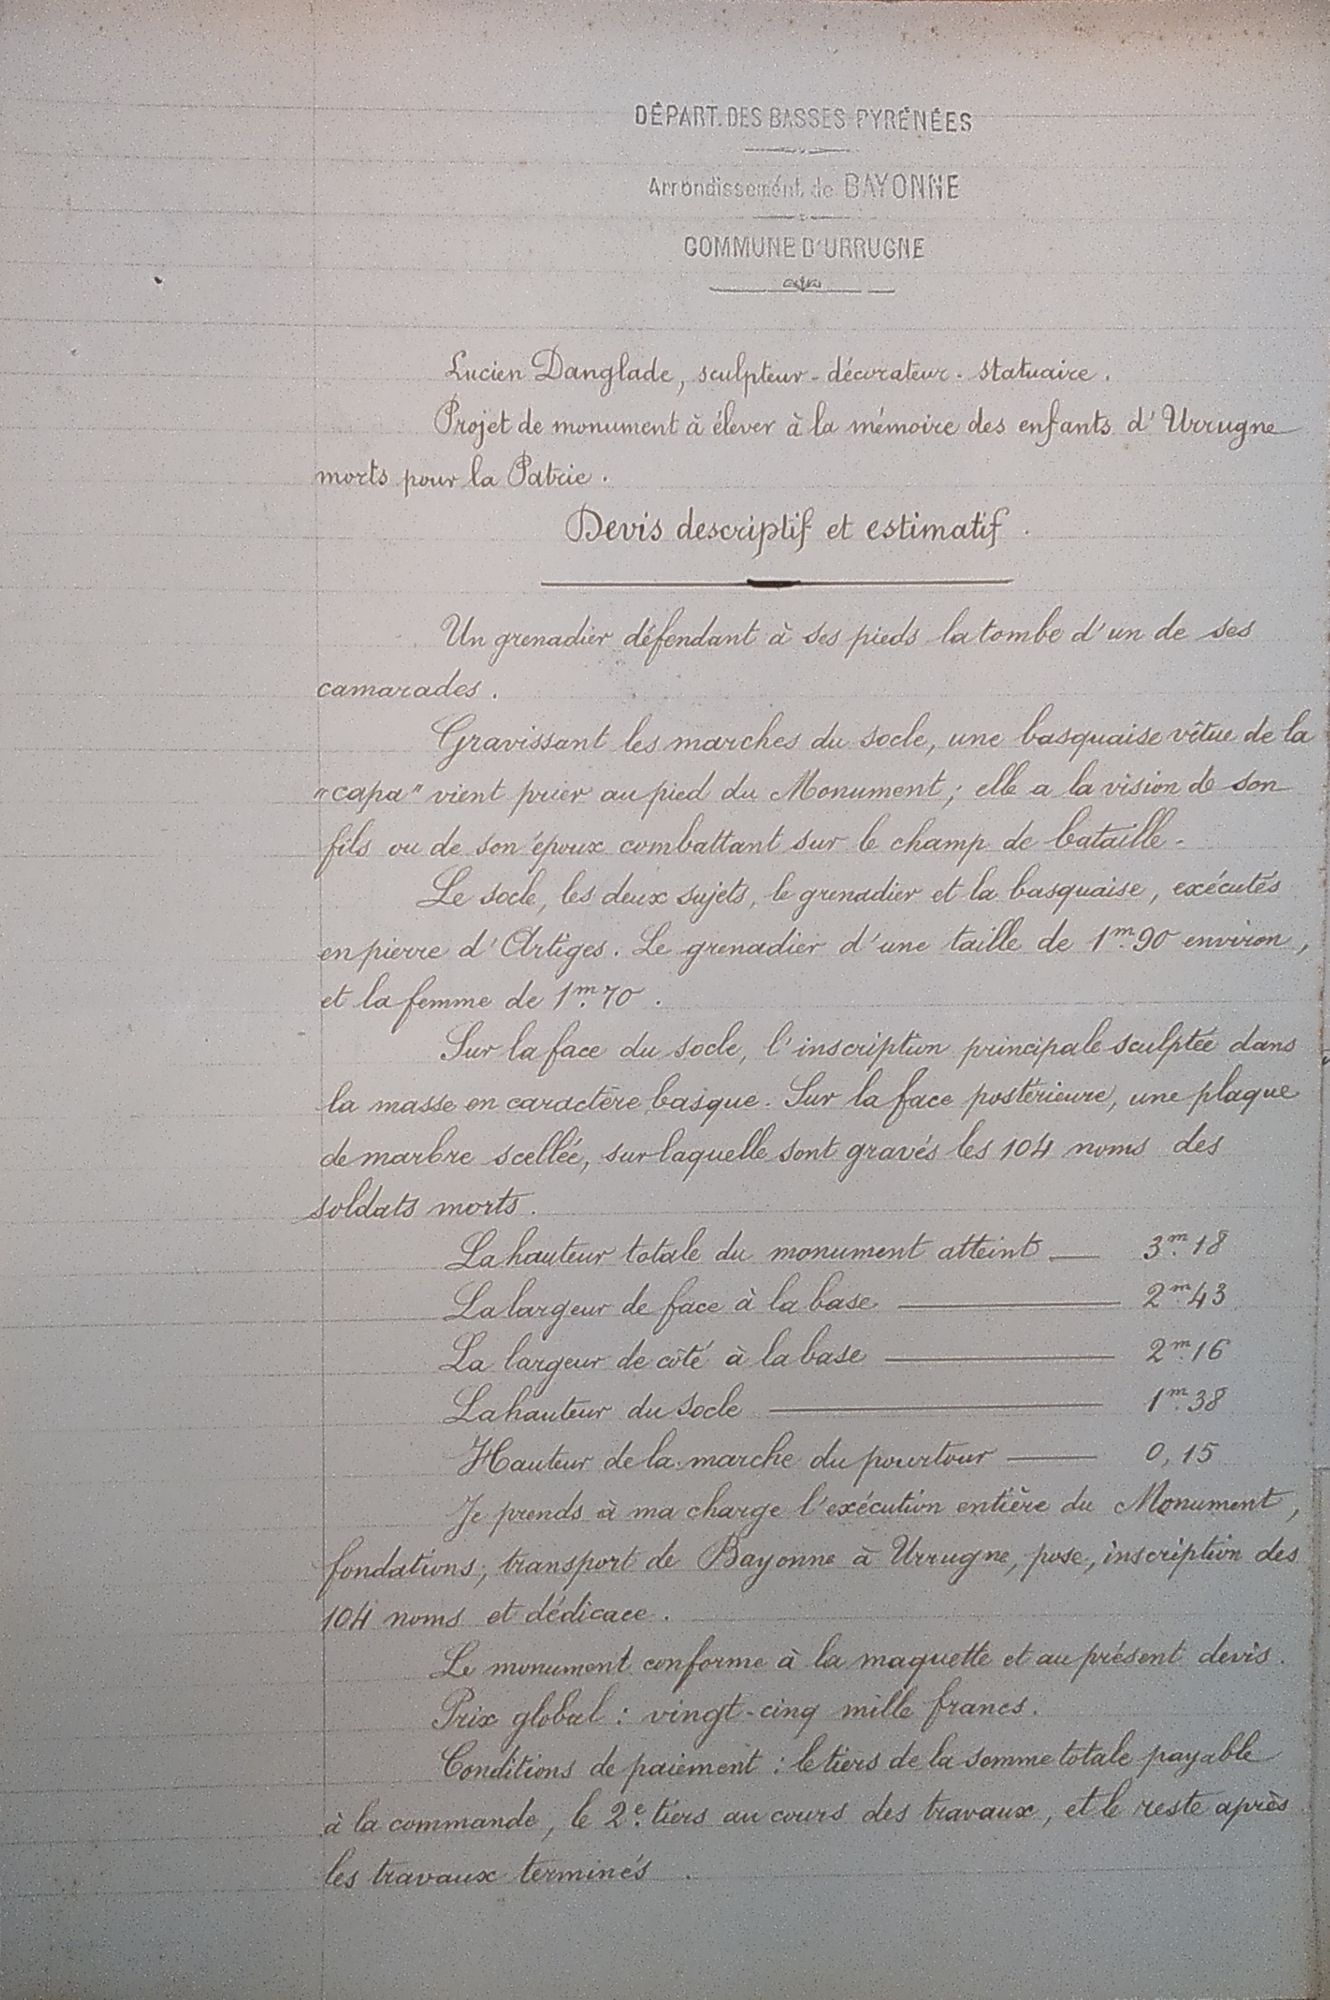 DÉPART. DES BASSES PYRÉNÉES
Arrondissement de BAYONNE
COMMUNE D'URRUGNE
Lucien Danglade, sculpteur - décorateur - statuaire.
Projet de monument à élever à la mémoire des enfants d'Urrugne
morts pour la Patrie.
Devis descriptif et estimatif.
Un grenadier défendant à ses pieds la tombe d'un de ses
camarades.
Gravissant les marches du socle, une basquaise vêtue de la
"capa" vient prier au pied du Monument; elle a la vision de son
fils ou de son époux combattant sur le champ de bataille.
Le socle, les deux sujets, le grenadier et la basquaise, exécutés
en pierre d'Artiges. Le grenadier d'une taille de 1m.90 environ,
et la femme de 1m.70.
Sur la face du socle, l'inscription principale sculptée dans
la masse en caractère basque. Sur la face postérieure, une plaque
de marbre scellée, sur laquelle sont gravés les 104 noms des
soldats morts.
La hauteur totale du monument atteint — 3m.18
La largeur de face à la base — 2m.43
La largeur de côté à la base — 2m.16
La hauteur du socle — 1m.38
Hauteur de la marche du pourtour — 0,15
Je prends à ma charge l'exécution entière du Monument,
fondations, transport de Bayonne à Urrugne, pose, inscription des
104 noms et dédicace.
Le monument conforme à la maquette et au présent devis.
Prix global : vingt-cinq mille francs.
Conditions de paiement : le tiers de la somme totale payable
à la commande, le 2e. tiers au cours des travaux, et le reste après
les travaux terminés.